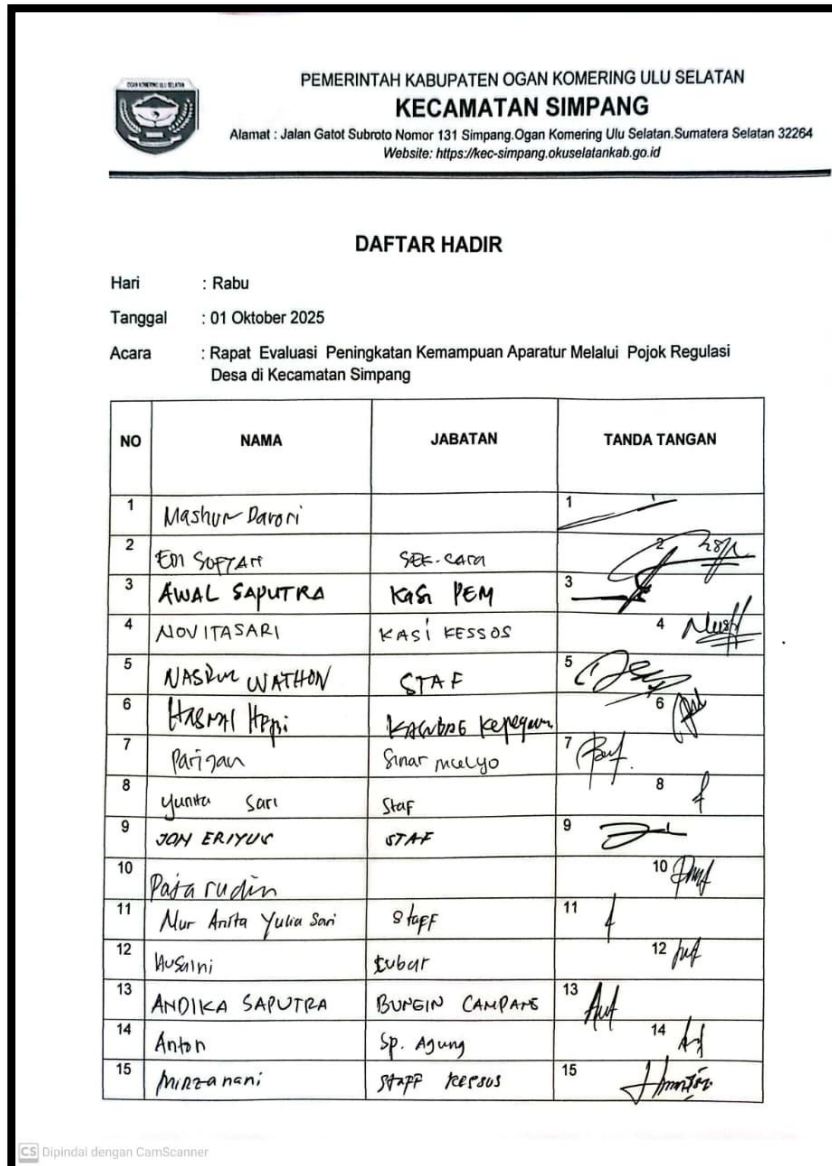 OGAN KOMERING ULU SELATAN
PEMERINTAH KABUPATEN OGAN KOMERING ULU SELATAN
KECAMATAN SIMPANG
Alamat : Jalan Gatot Subroto Nomor 131 Simpang.Ogan Komering Ulu Selatan.Sumatera Selatan 32264
Website: https://kec-simpang.okuselatankab.go.id
DAFTAR HADIR
Hari : Rabu
Tanggal : 01 Oktober 2025
Acara : Rapat Evaluasi Peningkatan Kemampuan Aparatur Melalui Pojok Regulasi
Desa di Kecamatan Simpang
NO NAMA JABATAN TANDA TANGAN
1 Mashur Darori 1
2 EDI 2
3 AWAL SAPUTRA KASI PEM 3
4 NOVITASARI KASI KESSOS 4
5 WATHON STAF 5
6 6
7 Parigan Sinar mulyo 7
8 Yunita Sari Staf 8
9 JON STAF 9
10 Pajarudin 10
11 Nur Anita Yulia Sari Staff 11
12 Husaini 12
13 ANDIKA SAPUTRA BUNGIN CAMPANG 13
14 Anton Sp. Agung 14
15 Mirzanani Staff Kessos 15
CS Dipindai dengan CamScanner